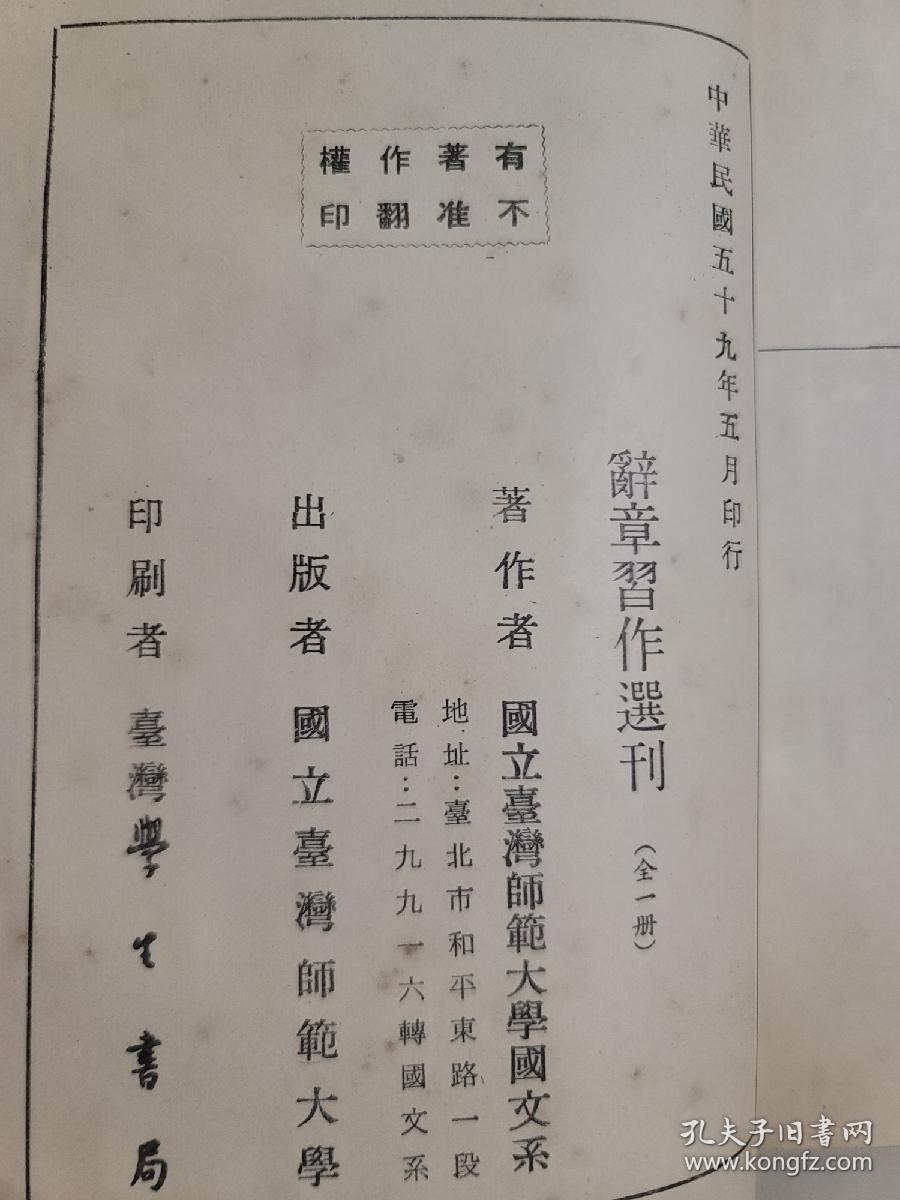 中華民國五十九年五月印行
辭章習作選刊（全一册）
著作者 國立臺灣師範大學國文系
地址：臺北市和平東路一段
電話：二九九一六轉國文系
出版者 國立臺灣師範大學
印刷者 臺灣學生書局
有著作權
不准翻印
孔夫子旧书网
www.kongfz.com